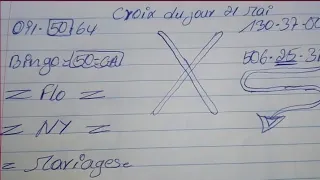 Croix du jour 21 mai
091-50/64
130-37-00
Bingo=50=GA
506-25-31
= Flo =
= NY =
= Mariages=